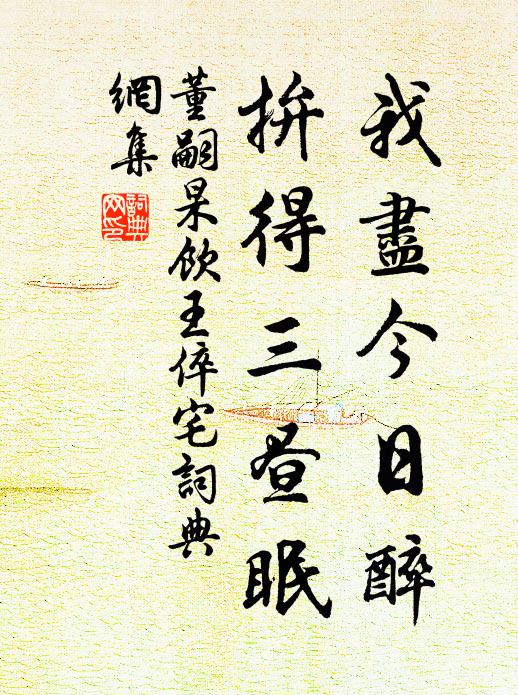 我盡今日醉
拚得三昼眠
董嗣杲飲王倅宅詞典
網集
詞典
网印